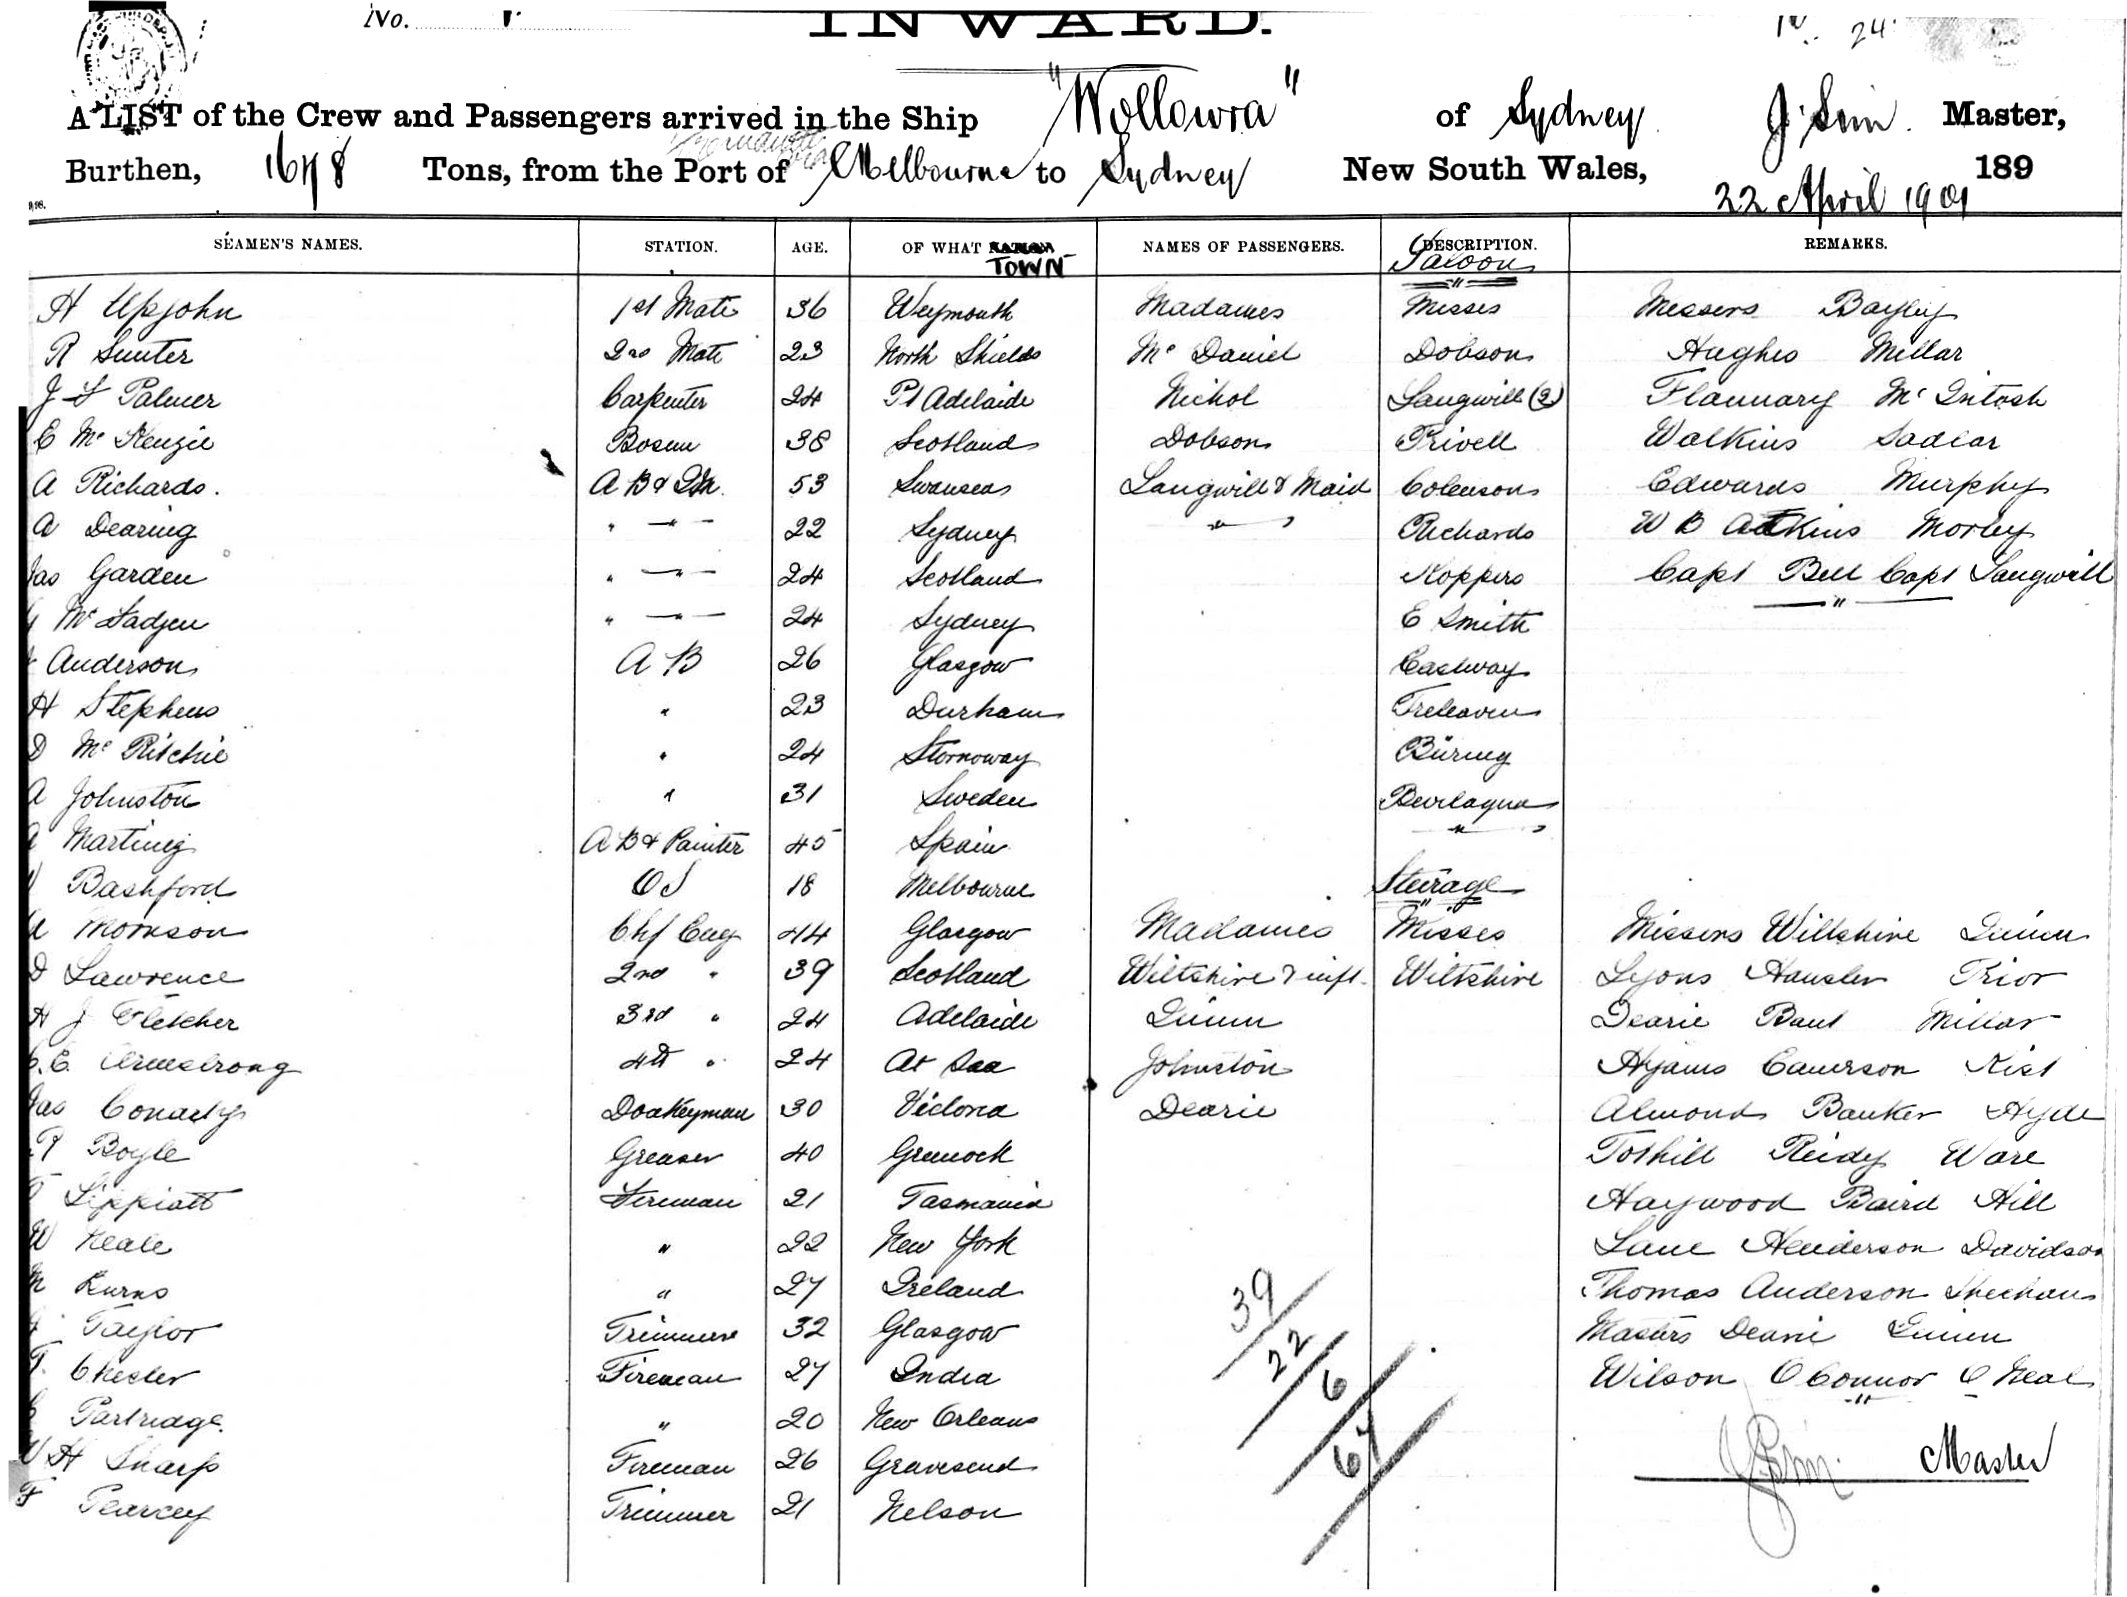 No.
INWARD.
24
A LIST of the Crew and Passengers arrived in the Ship "Wollowra" of Sydney J Sim Master,
Burthen, Tons, from the Port of Melbourne to Sydney New South Wales, 189
22 April 1901
SEAMEN'S NAMES. STATION. AGE. OF WHAT NATION NAMES OF PASSENGERS. DESCRIPTION. REMARKS.
TOWN Saloon
H Upjohn 1st Mate 36 Weymouth Madames Misses Messers Bayley
R Sunter 2nd Mate 23 North Shields Mc Daniel Dobson Hughes Millar
J S Palmer Carpenter 24 Pt Adelaide Nichol Langwill (2) Flannary Mc Intosh
E Mc Kenzie Bosun 38 Scotland Dobson Privell Watkins Sadlar
A Richards. A B & 53 Swansea Langwill & Maid Colenson Edwards Murphy
A Dearing " — " — 22 Sydney " Richards W B Adkins Morley
Jas Garden " — " — 24 Scotland Koppers Capt Bell Capt Langwill
Mc Fadzen " — " — 24 Sydney E Smith "
Anderson A B 26 Glasgow Eastway
H Stephens " 23 Durham Treleaven
D Mc Ritchie " 24 Stornoway Büring
A Johnston " 31 Sweden Bevilaqua
Martinez A B & Painter 45 Spain "
Bashford OS 18 Melbourne Steerage
Morrison Chf Eng 44 Glasgow Madames Misses Messers Wiltshire Quinn
D Lawrence 2nd " 39 Scotland Wiltshire & inft. Wiltshire Lyons Hansler Prior
H J Fletcher 3rd " 24 Adelaide Quinn Dearie Baut Millar
E. Armstrong 4th " 24 At Sea Johnston Hyams Camerson Kist
Jas Conarty Donkeyman 30 Victoria Dearie Almond Banker Hyde
R Boyle Greaser 40 Greenock Tothill Reidy Ware
Lippiatt Fireman 21 Tasmania Haywood Baird Hill
W Neale " 22 New York Lane Henderson Davidson
M Burns " 27 Ireland Thomas Anderson Sheehan
Taylor Trimmer 32 Glasgow 39 Masters Dearie Quinn
T. Chester Fireman 27 India 22 Wilson O Connor O Neal
Partridge. " 20 New Orleans 6 "
W H Sharp Fireman 26 Gravesend 67 J Sim. Master
F Pearcey Trimmer 21 Nelson